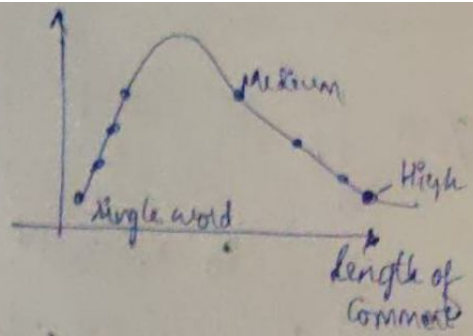 Medium
High
single word
Length of
Comment